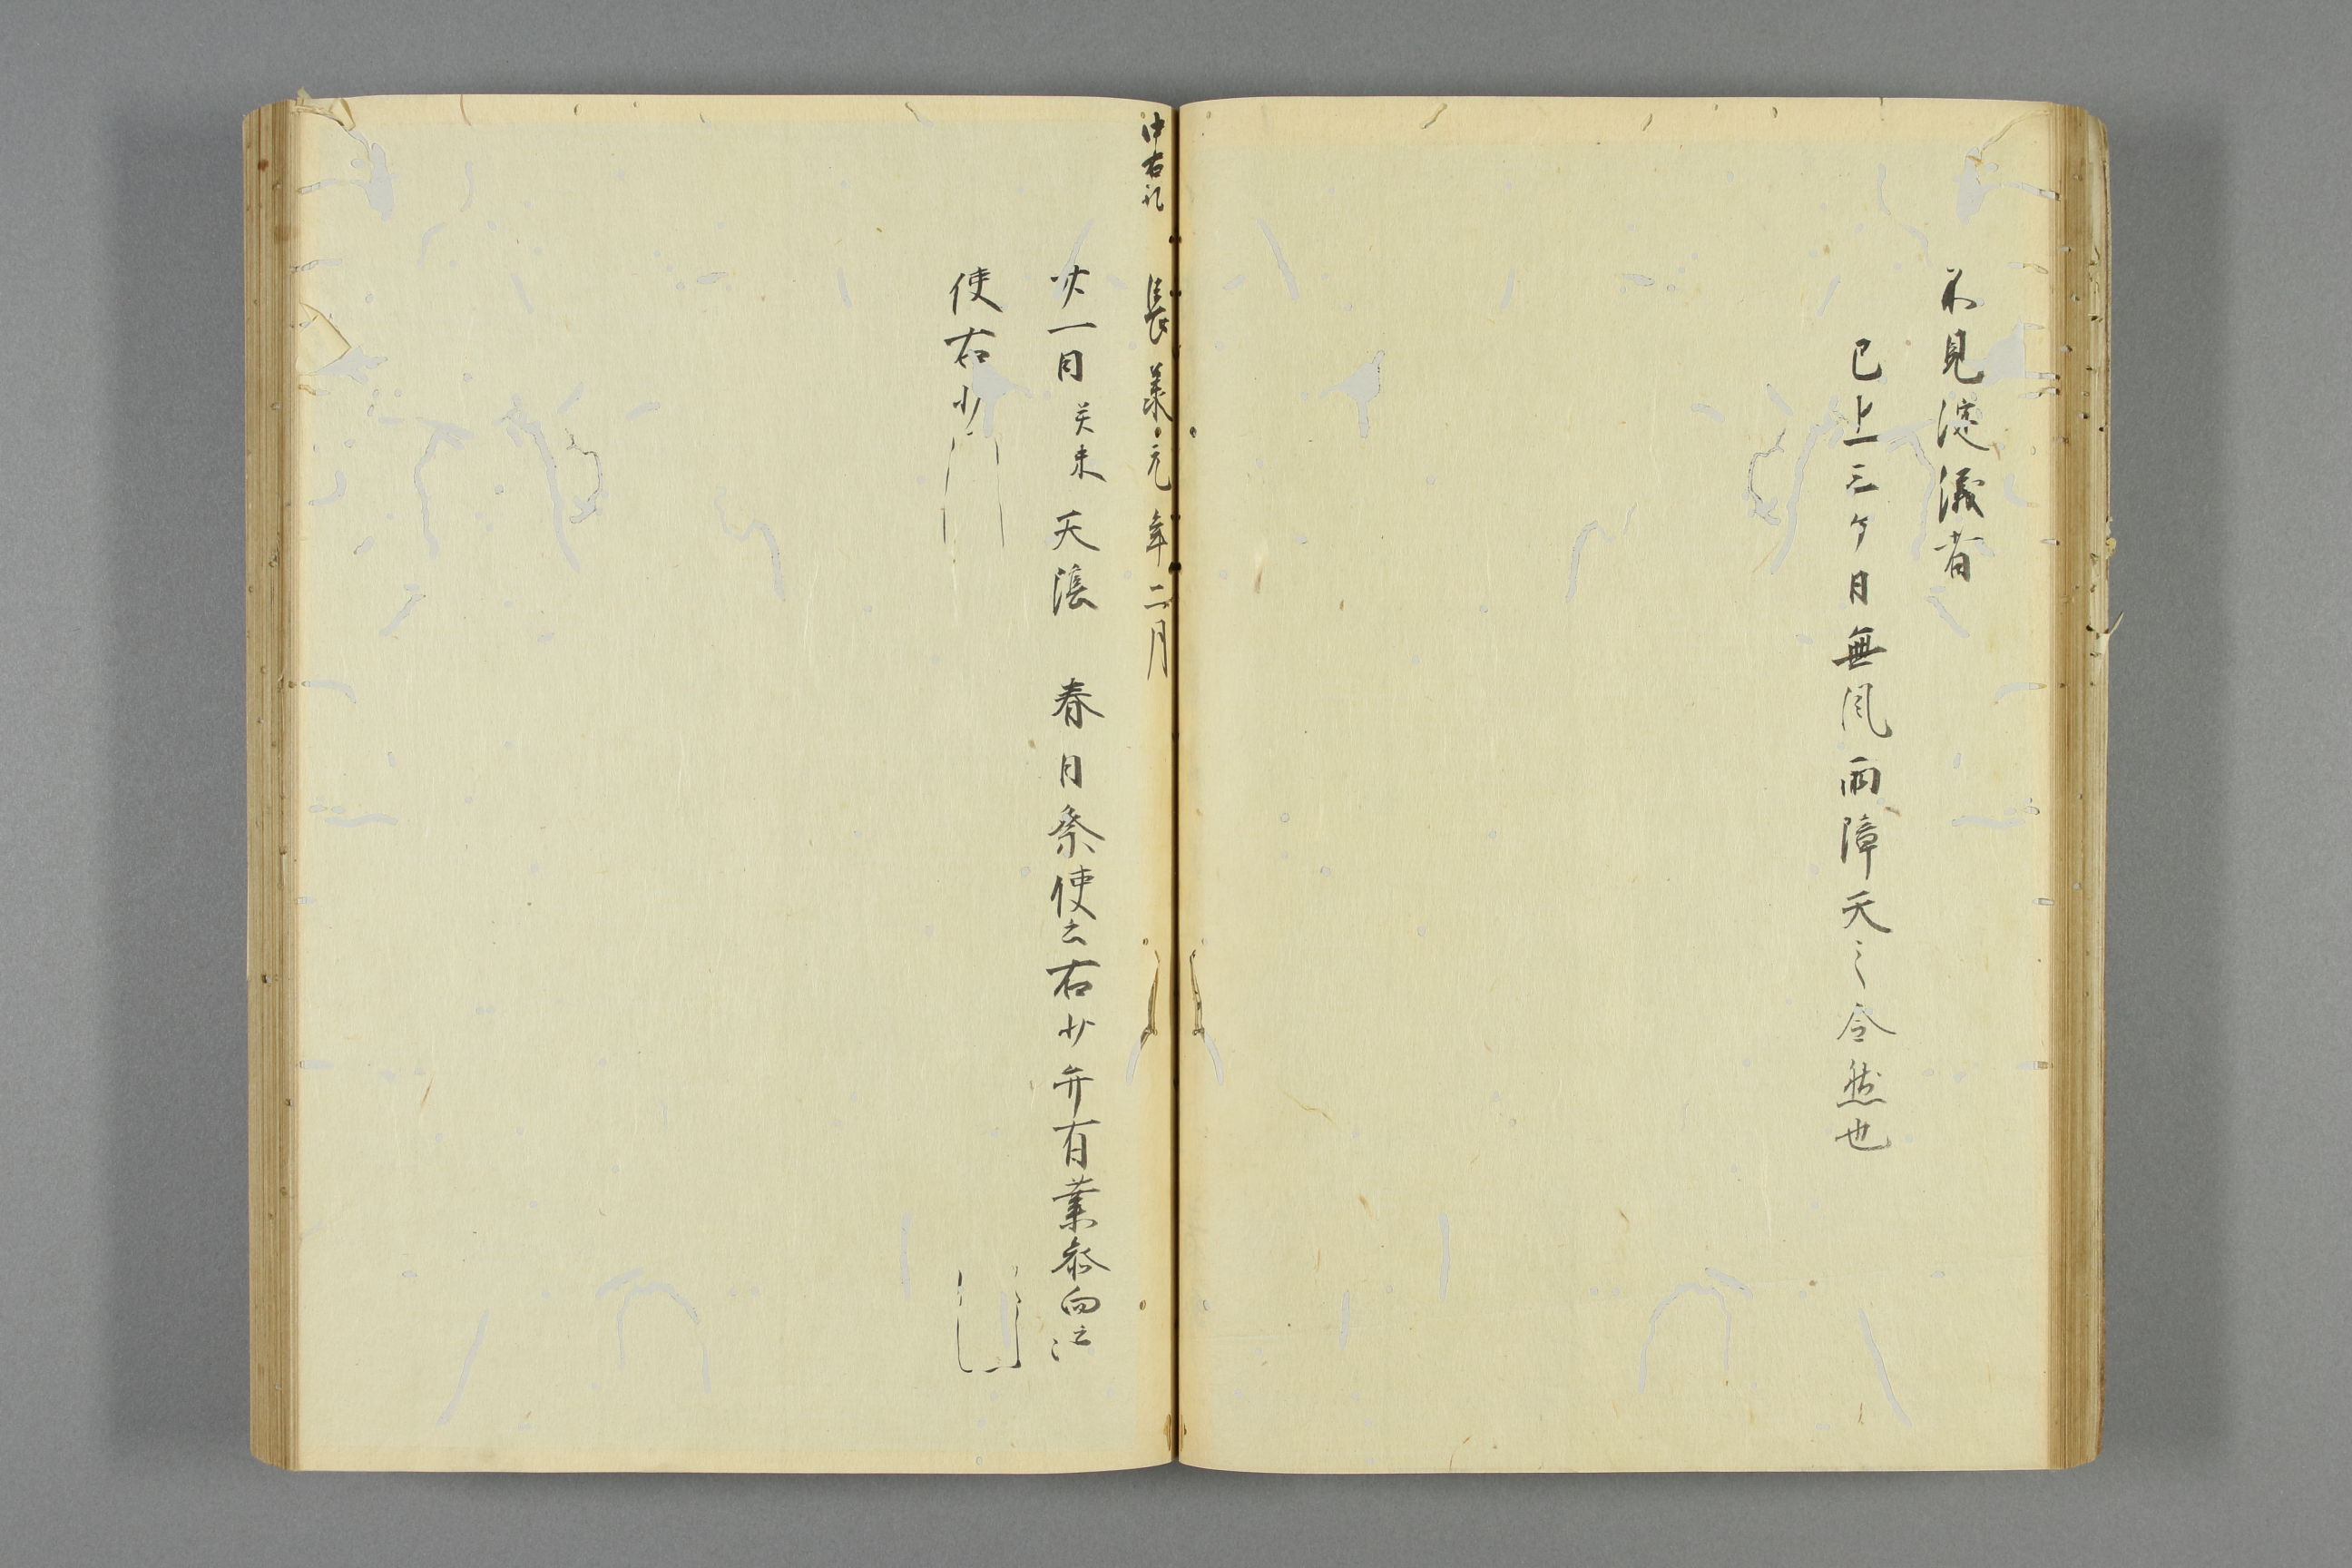 不見淀儀者
已上三ケ月無風雨障天之令然也
中右記 長承元年二月
廿一日癸未天陰 春日祭使云右少弁有業参向云
使右少